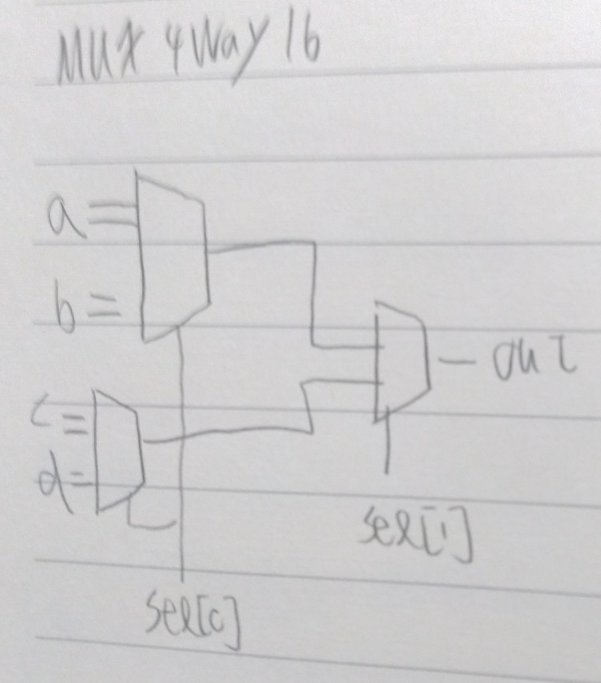 MUX 4Way 16
a
b
c
d
out
sel[1]
sel[0]